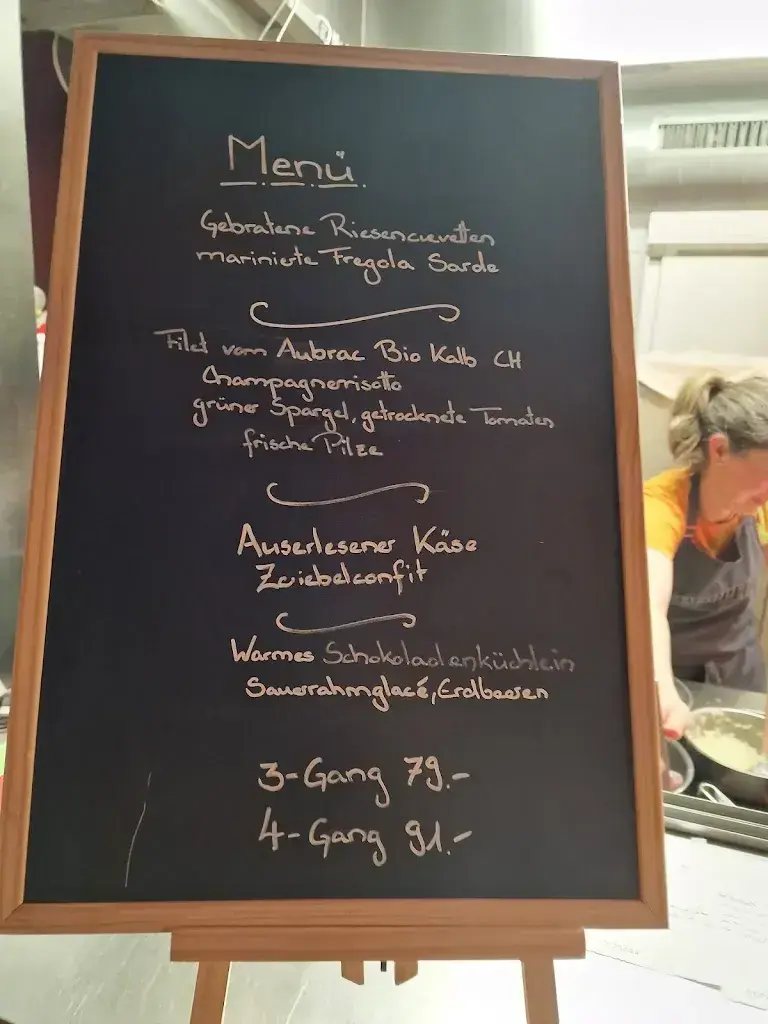 Menü
Gebratene Riesencrevetten
marinierte Fregola Sarde
Filet vom Aubrac Bio Kalb CH
Champagnerrisotto
grüner Spargel, getrocknete Tomaten
frische Pilze
Auserlesener Käse
Zwiebelconfit
Warmes Schokoladenküchlein
Sauerrahmglacé, Erdbeeren
3-Gang 79.-
4-Gang 91.-